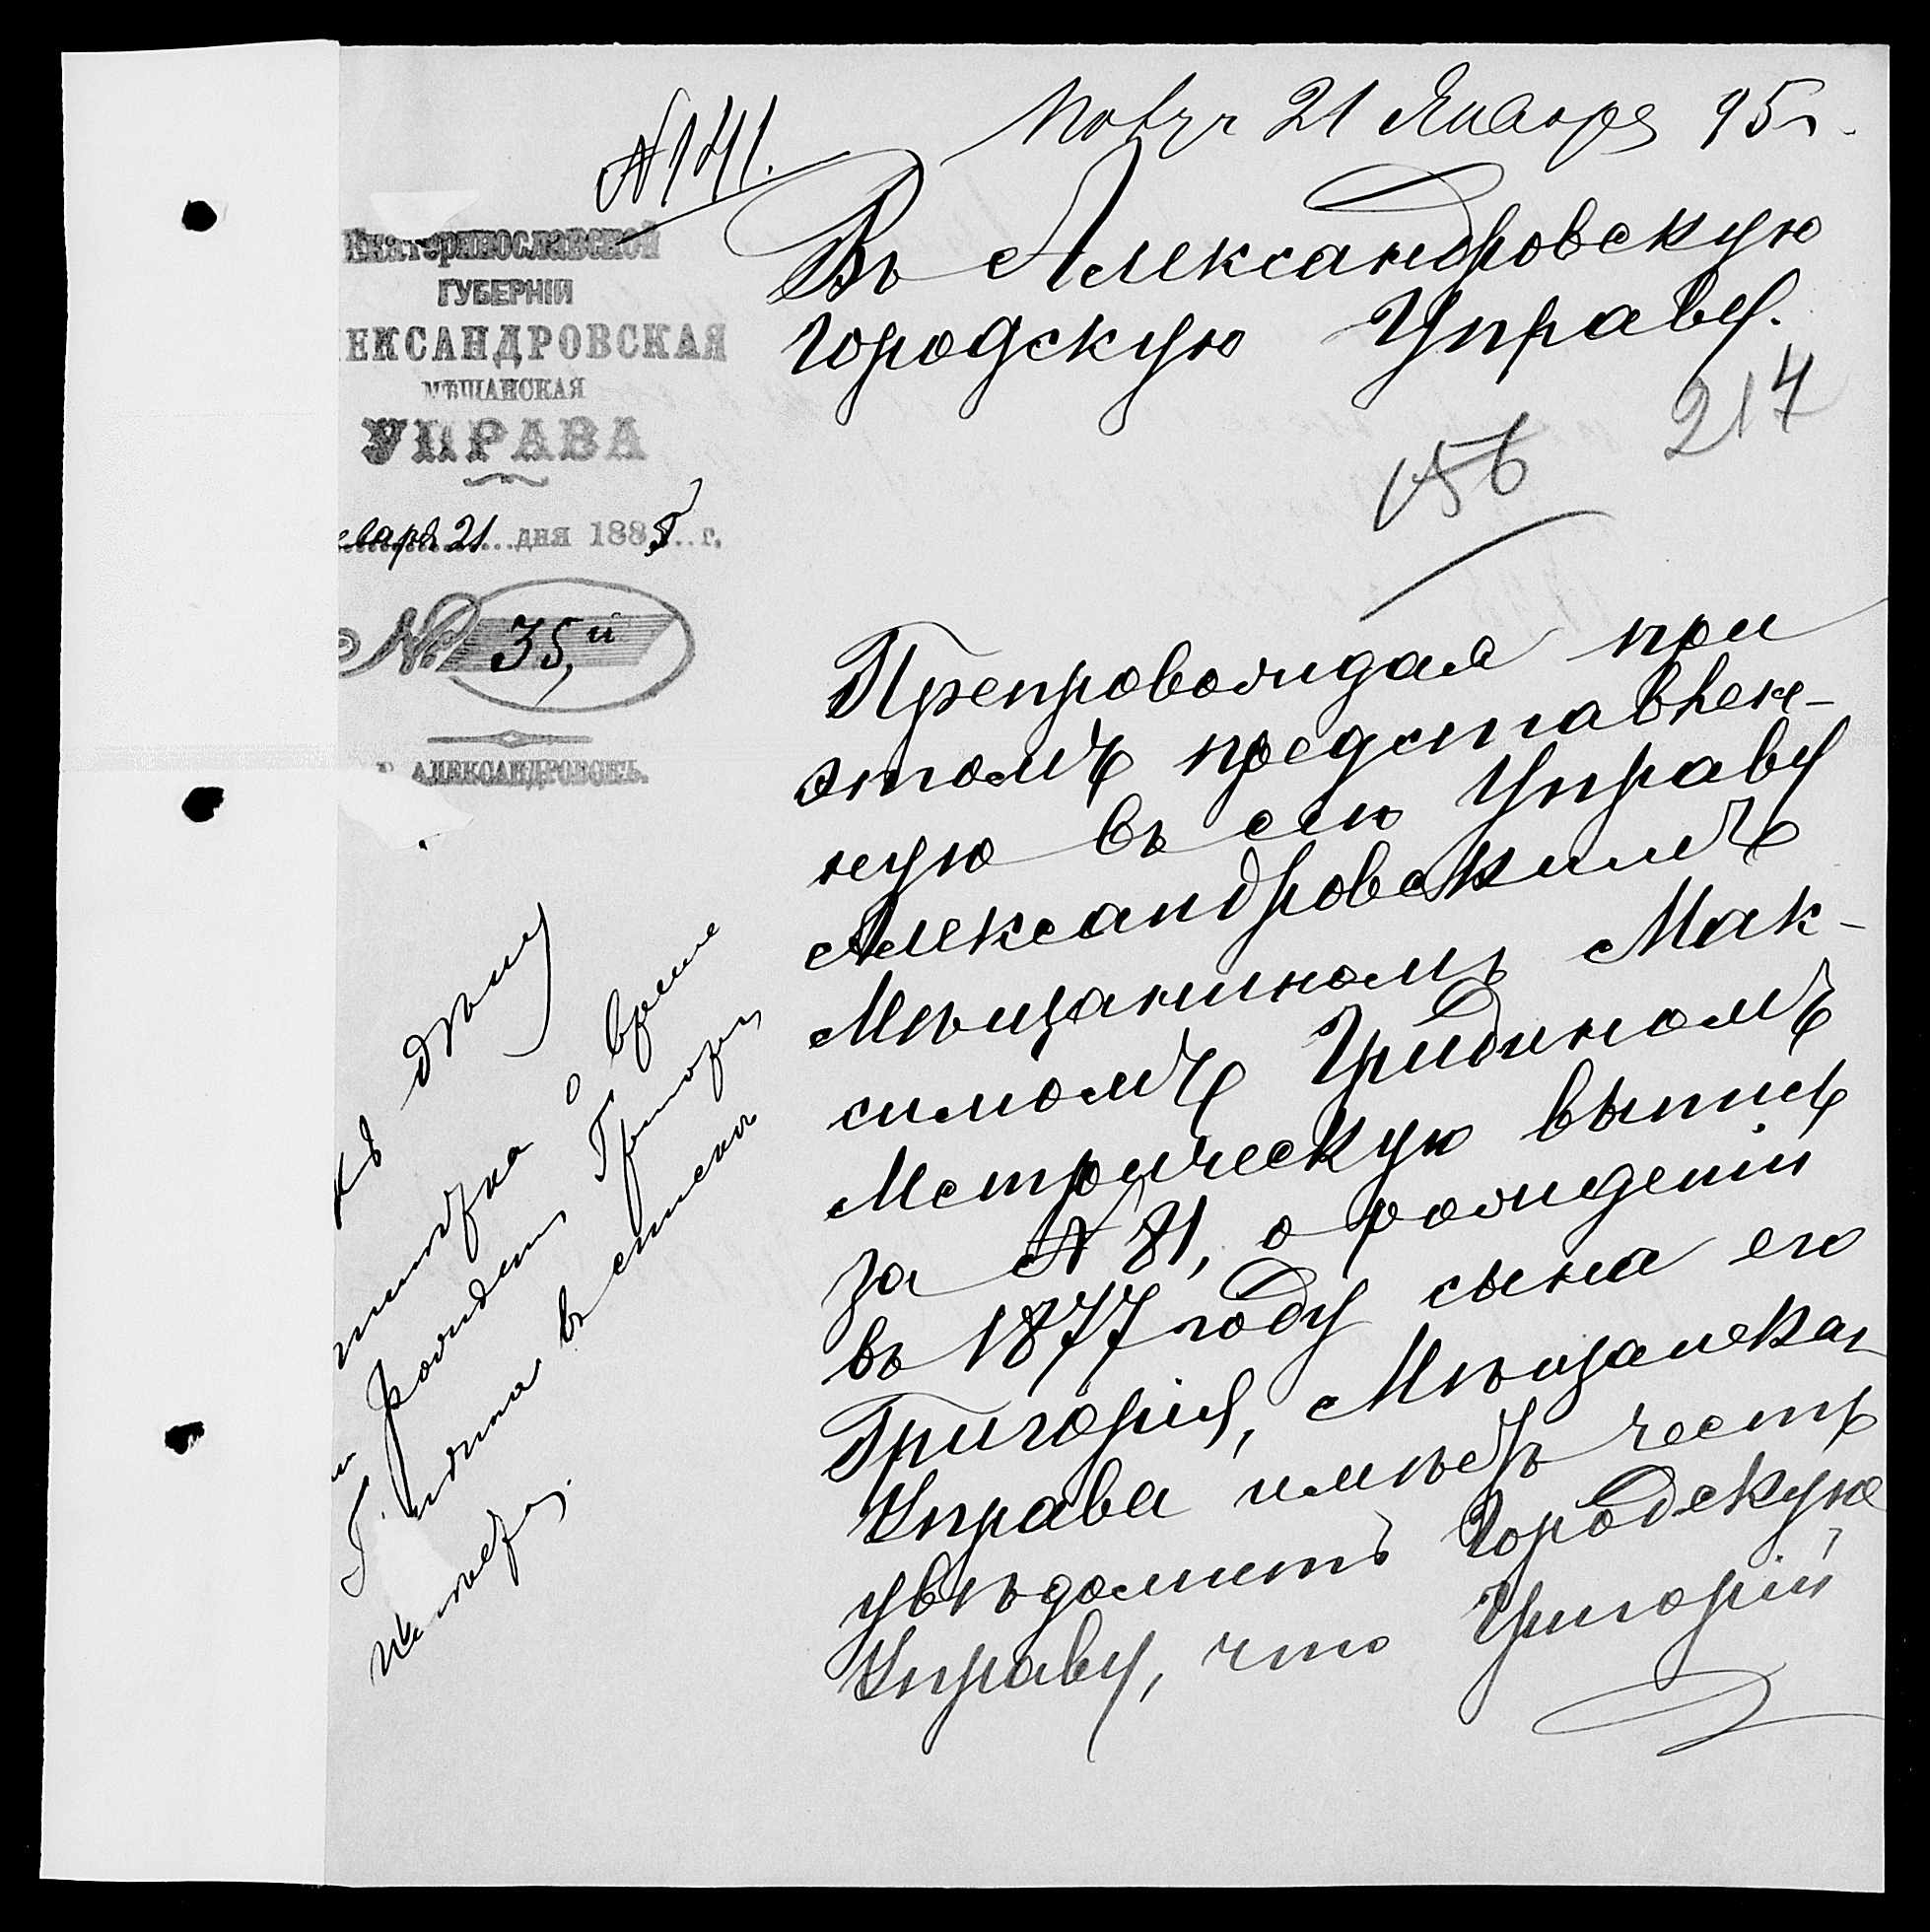 № 141.
Получ 21 Января 95 г.
Екатеринославской
ГУБЕРНІИ
ЛЕКСАНДРОВСКАЯ
МѢЩАНСКАЯ
УПРАВА
нваря 21 дня 1885 г.
№ 35,й
г. АЛЕКСАНДРОВСКЪ.
Въ Александровскую
Городскую Управу.
217
156
Препровождая при
этомъ представлен-
ную въ сію Управу
Александровскимъ
Мѣщаниномъ Мак-
симомъ Гридиномъ
Метрическую выпись
за № 81, о рожденіи
въ 1877 году сына его
Григорія, Мѣщанская
Управа имѣетъ честь
увѣдомить Городскую
Управу, что Григорій
къ дѣлу
о время
рожденія Григорія
въ списки